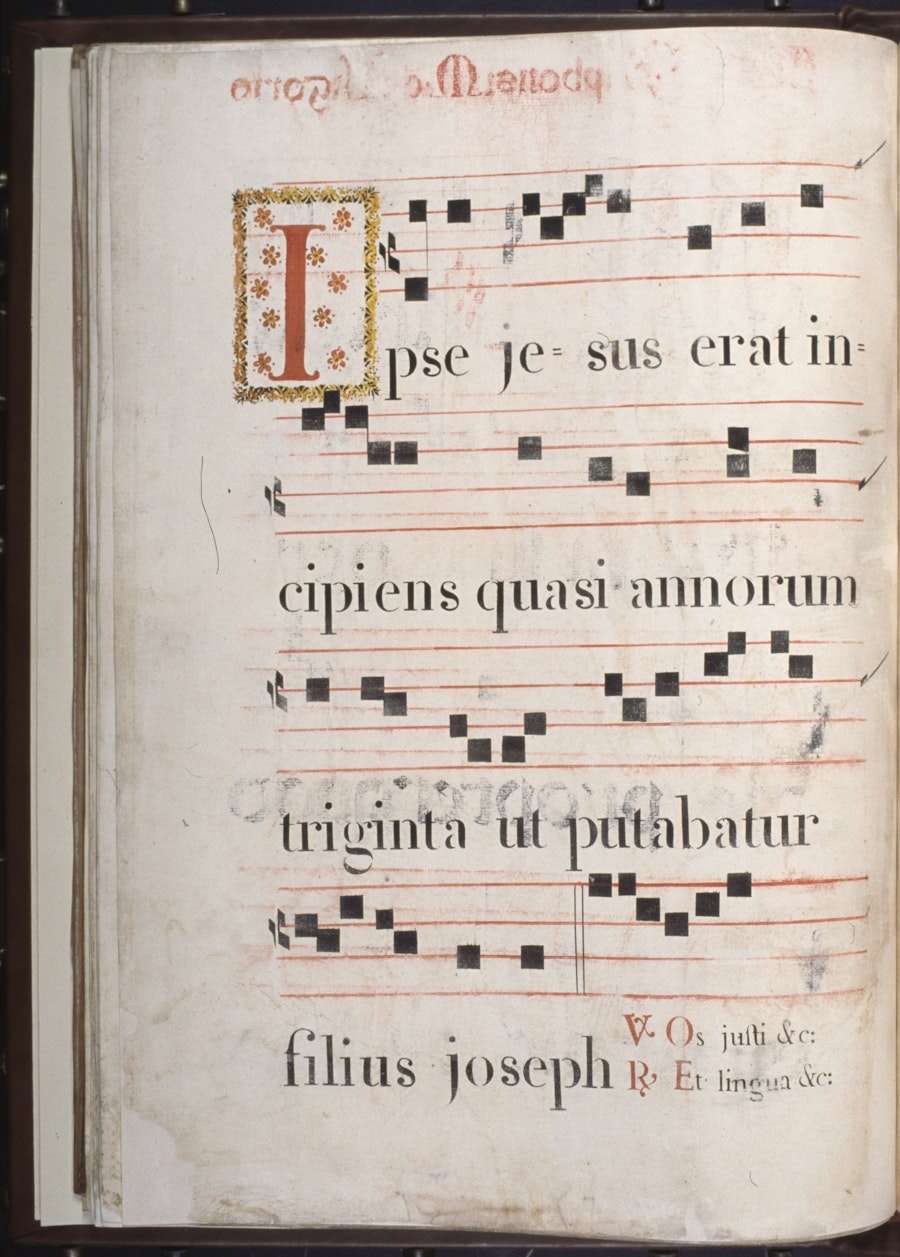 Ipse je= sus erat in=
cipiens quasi annorum
triginta ut putabatur
filius joseph
℣ Os juſti &c:
℟ Et lingua &c: